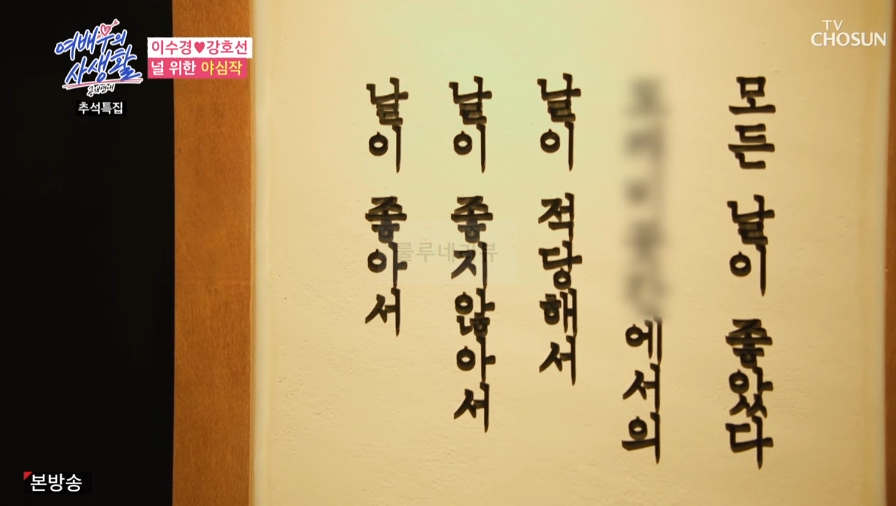 여배우의
사생활
추석특집
이수경♥강호선
널 위한 야심작
TV
CHOSUN
날이 좋아서
날이 좋지않아서
날이 적당해서
에서의
모든 날이 좋았다
룰루네리뷰
본방송